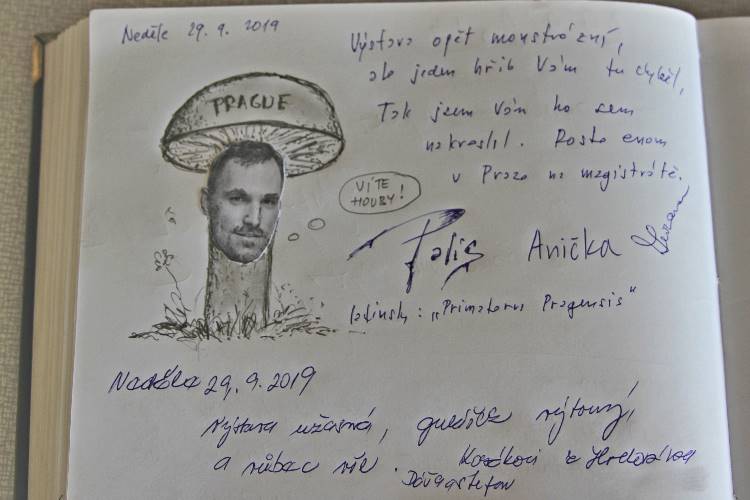 Neděle 29. 9. 2019
Výstava opět monstrózní,
ale jeden hřib Vám tu chyběl,
Tak jsem Vám ho sem
nakreslil. Roste enom
v Praze na magistrátě.
PRAGUE
VÍTE
HOUBY!
Anička
latinsky: „Primatorus Pragensis“
Neděle 29. 9. 2019
Výstava užasná,
a vůbec vše.